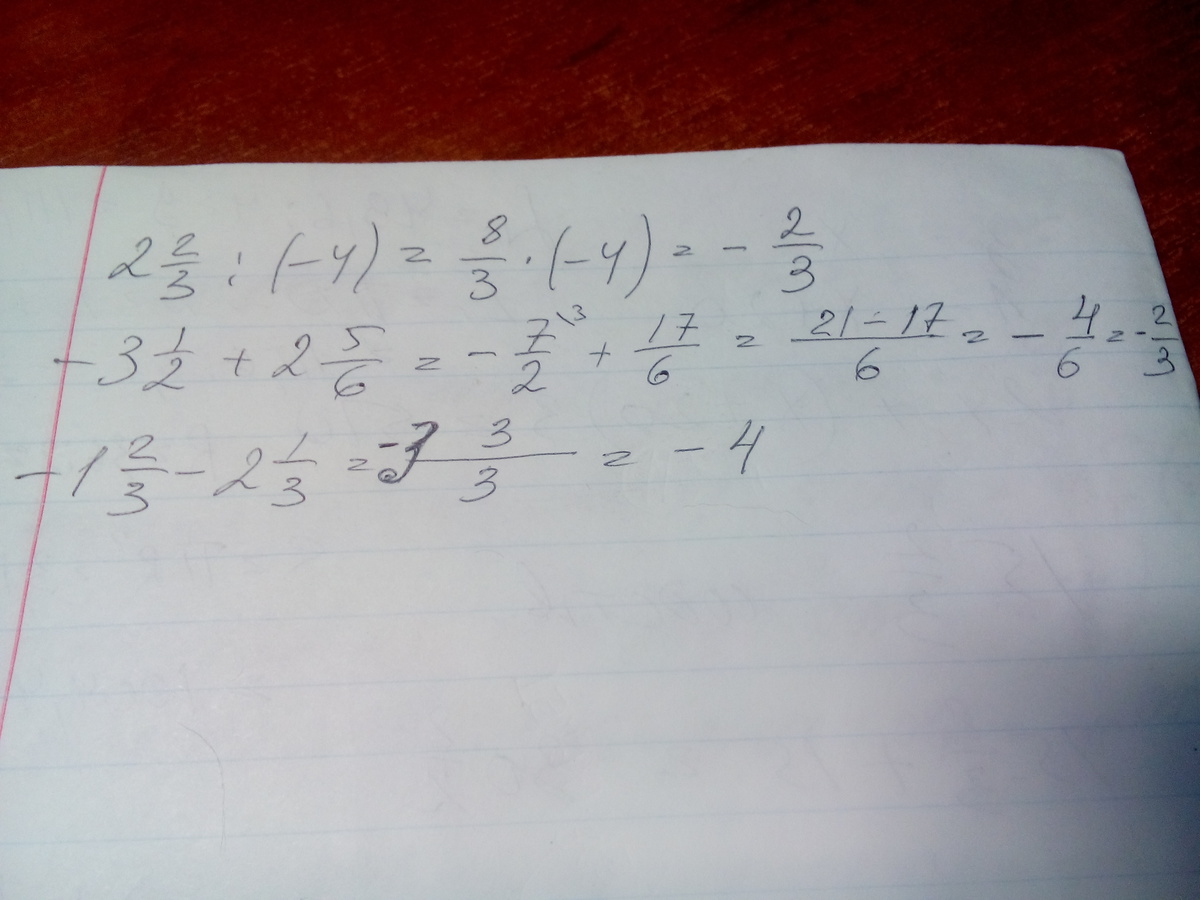 2 2/3 : (-4) = 8/3 · (-4) = - 2/3
-3 1/2 + 2 5/6 = - 7\3/2 + 17/6 = 21-17/6 = - 4/6 = - 2/3
-1 2/3 - 2 1/3 = -3 3/3 = -4